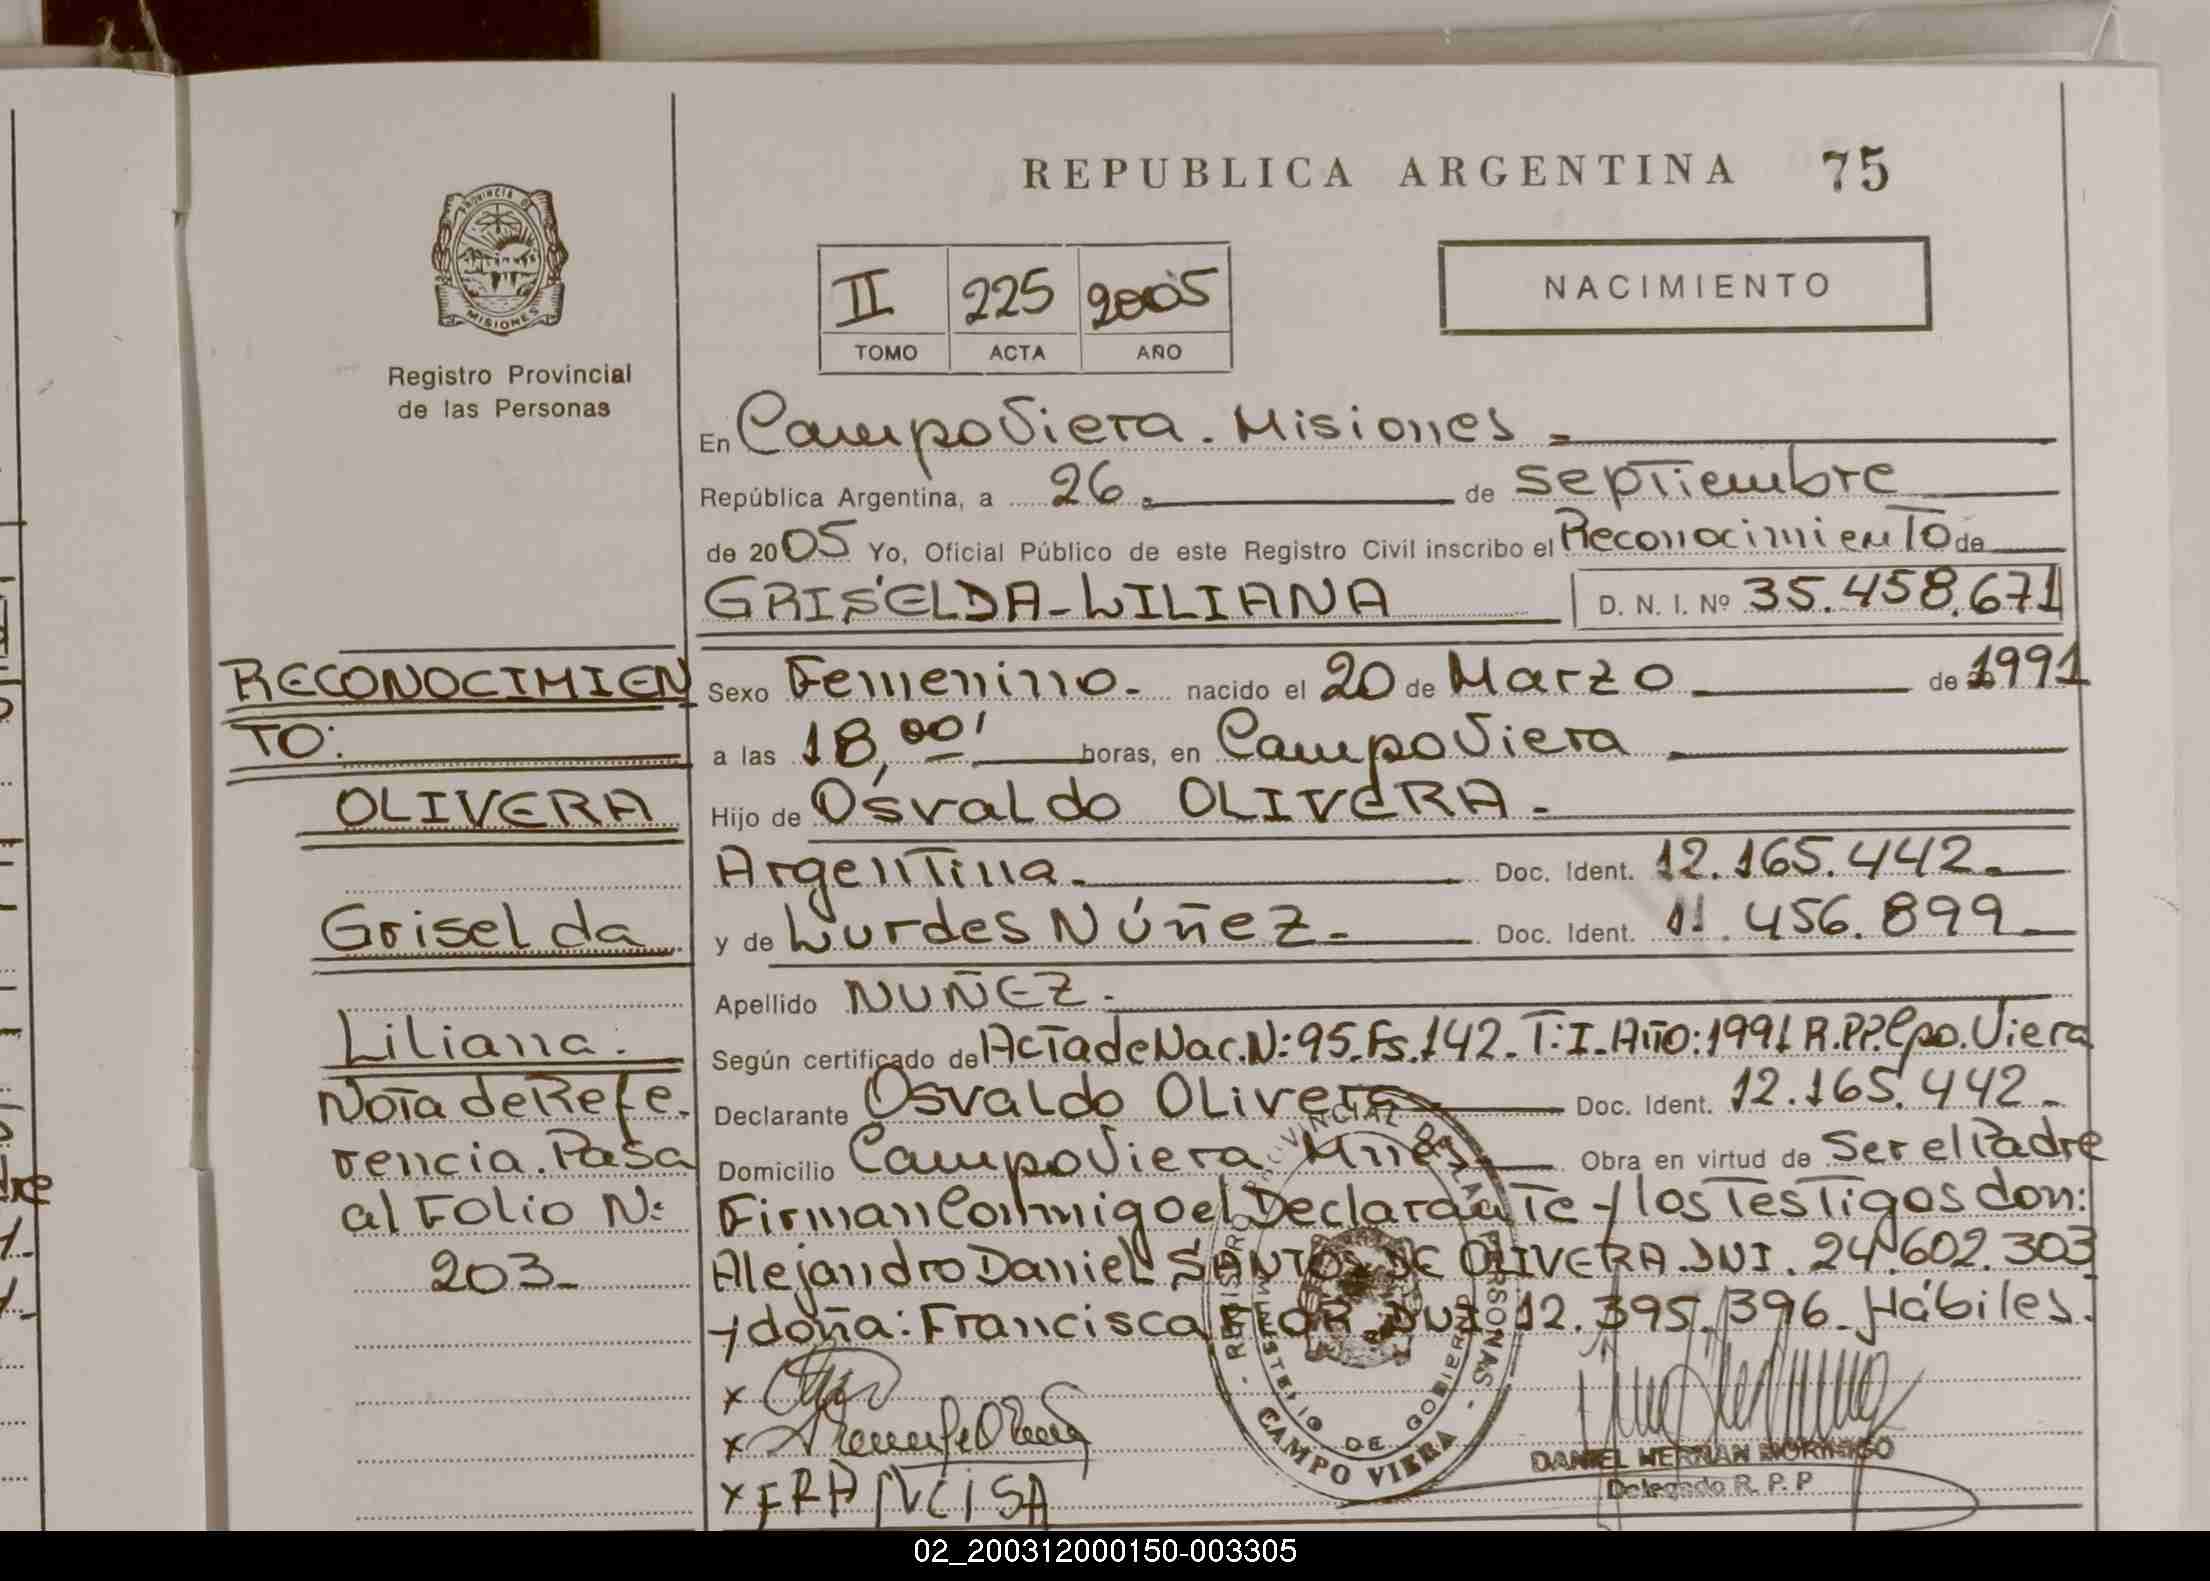 REPUBLICA ARGENTINA 75
PROVINCIA DE
MISIONES
Registro Provincial
de las Personas
II 225 2005
TOMO ACTA AÑO
NACIMIENTO
En Campo Viera. Misiones
República Argentina, a 26 de septiembre
de 2005 Yo, Oficial Público de este Registro Civil inscribo el Reconocimiento de
GRISELDA-LILIANA D. N. I. Nº 35.458.671
Sexo Femenino. nacido el 20 de Marzo de 1991
a las 18,00' horas, en Campo Viera
Hijo de Osvaldo OLIVERA.
Argentina. Doc. Ident. 12.165.442.
y de Lurdes Núñez. Doc. Ident. 11.456.899
Apellido NUÑEZ.
Según certificado de Acta de Nac. N: 95. Fs. 142. T: I. Año: 1991 R.P.P. Cpo. Viera
Declarante Osvaldo Olivera Doc. Ident. 12.165.442
Domicilio Campo Viera Mnes. Obra en virtud de Ser el Padre
Firman Conmigo el Declarante y los Testigos don:
Alejandro Daniel SANTOS DE OLIVERA. DNI. 24.602.303
y doña: Francisca FLOR DNI 12.395.396. Hábiles.
RECONOCIMIEN
TO:
OLIVERA
Griselda
Liliana.
Nota de Refe.
rencia. Pasa
al Folio N:
203
x
x
x FRANCISA
REGISTRO PROVINCIAL DE LAS PERSONAS
MINISTERIO DE GOBIERNO
CAMPO VIERA
DANIEL HERNAN MORINIGO
Delegado R. P. P
02_200312000150-003305